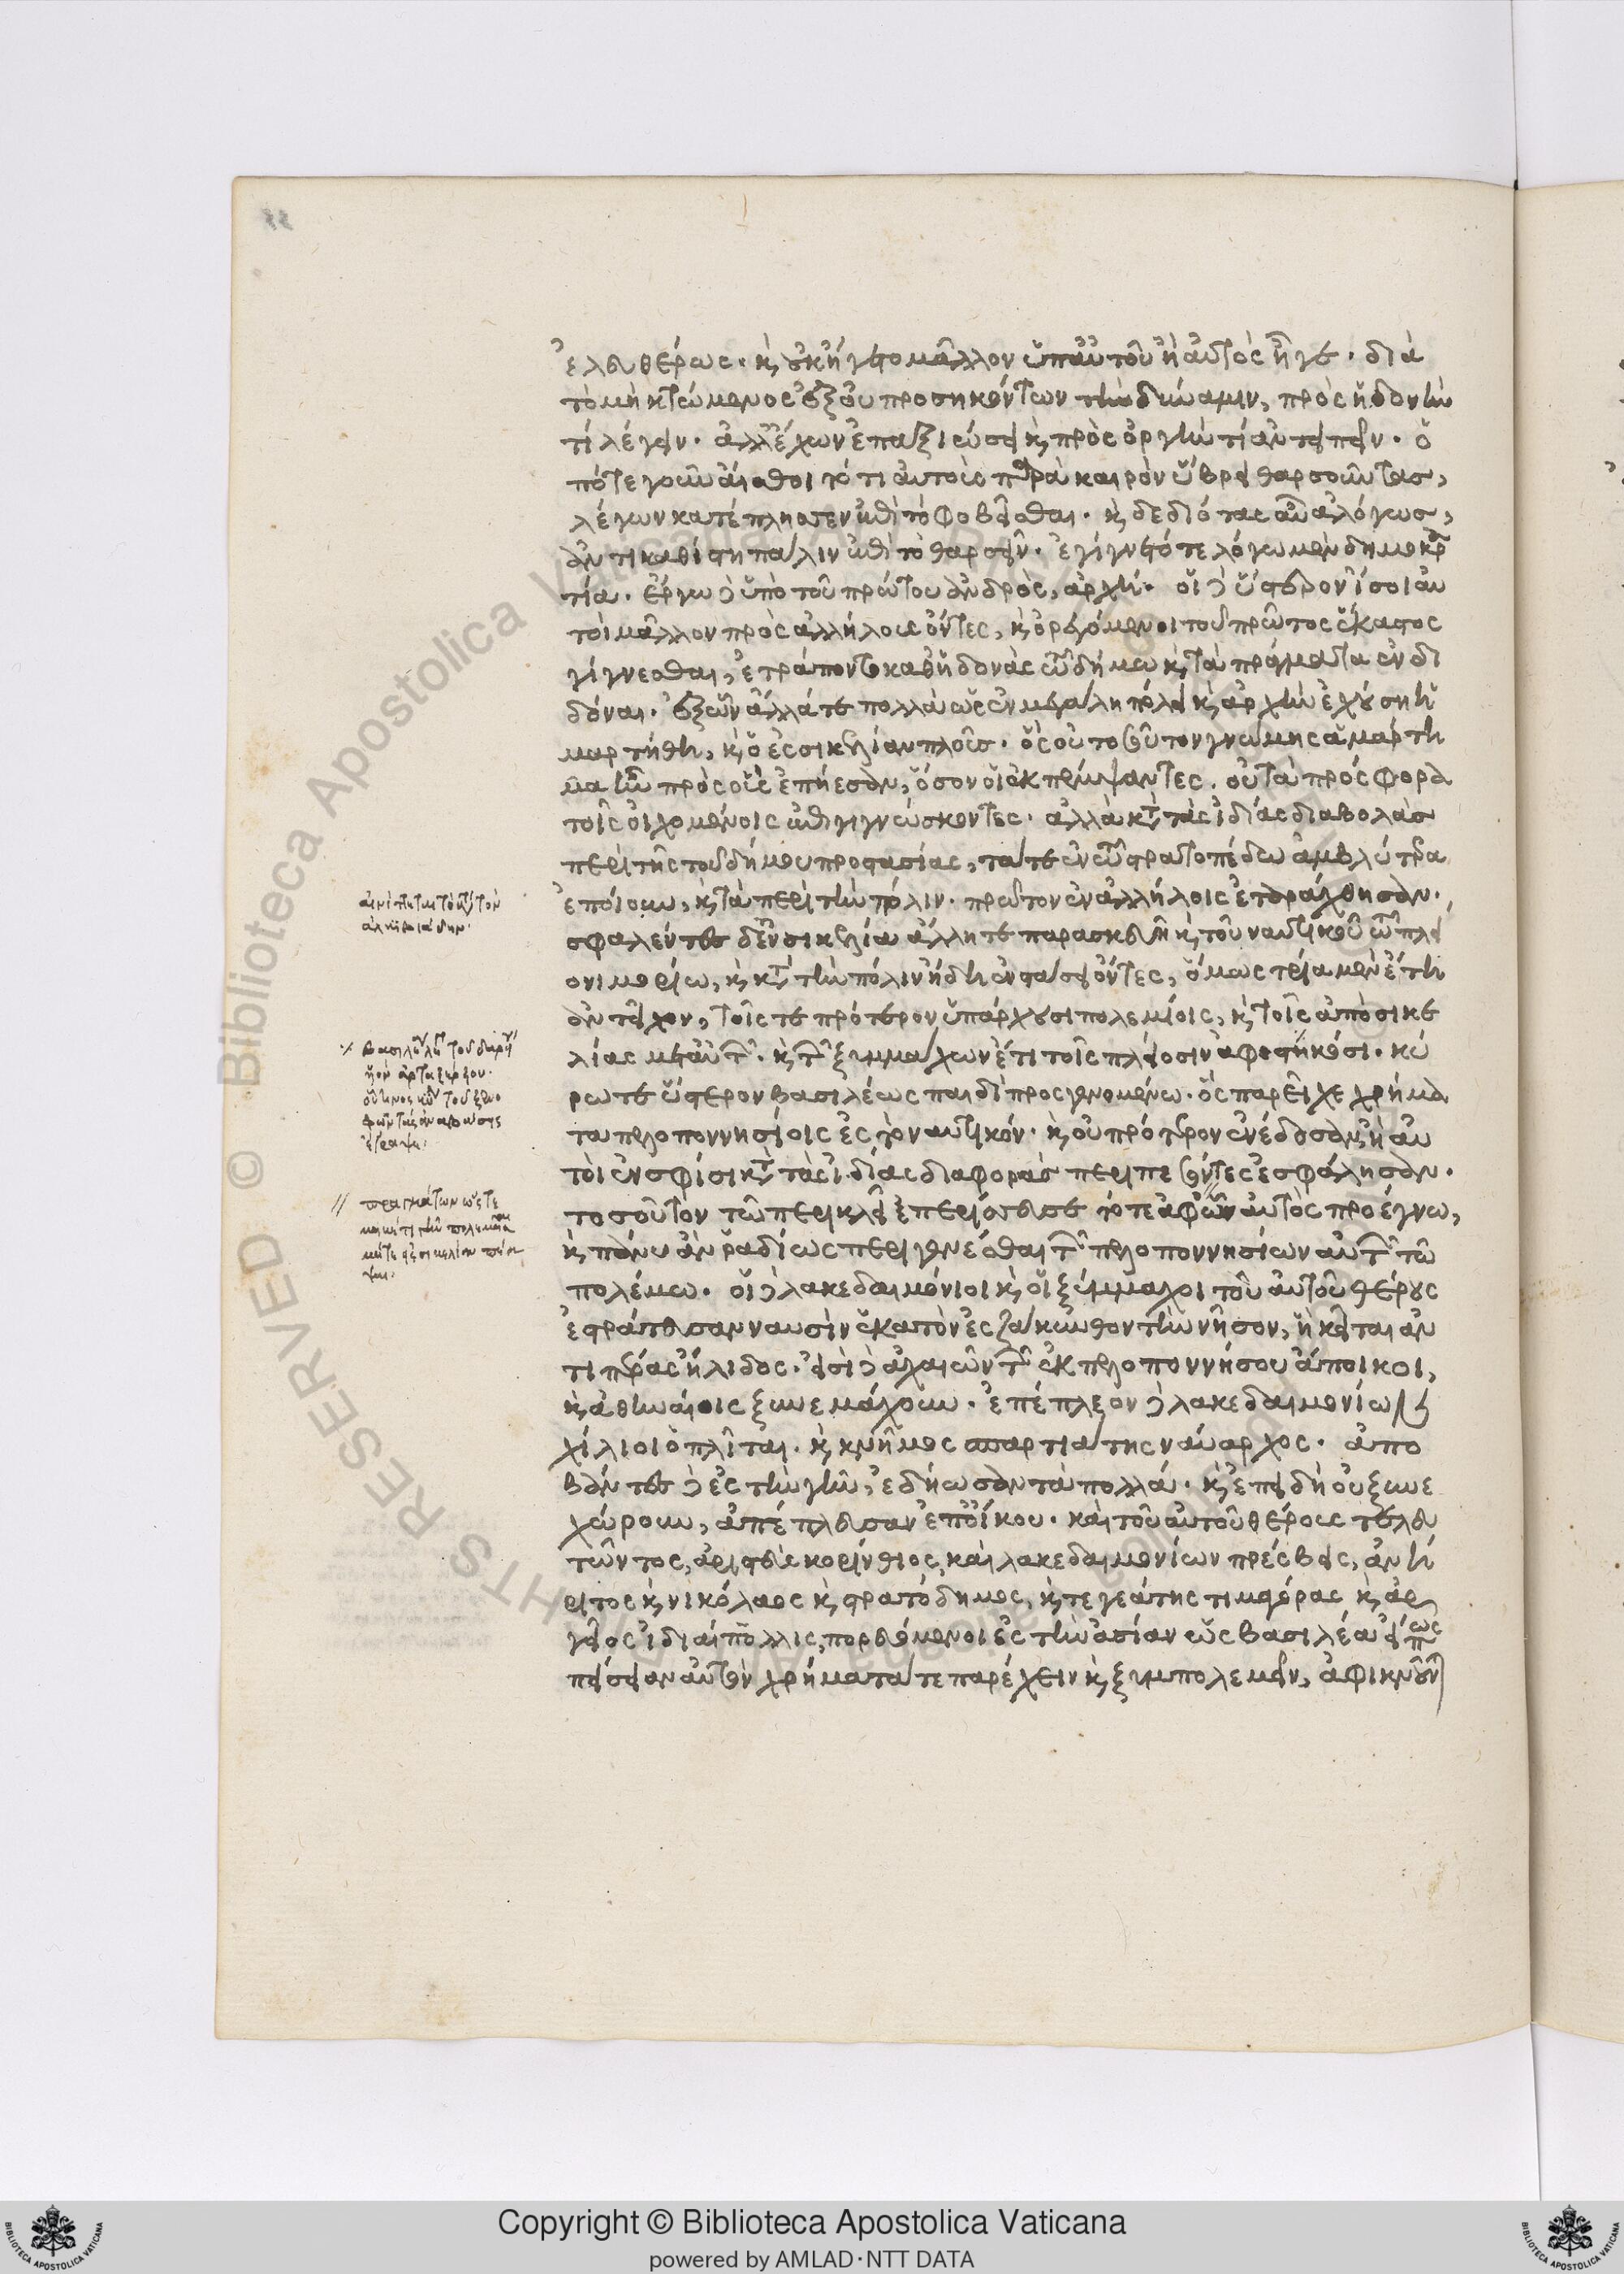 ἐλευθέρως. καὶ οὐκ ἤγετο μᾶλλον ὑπ' αὐτοῦ ἢ αὐτὸς ἦγε. διὰ
τὸ μὴ κτώμενος ἐξ οὐ προσηκόντων τὴν δύναμιν, πρὸς ἡδονὴν
τι λέγειν. ἀλλ' ἔχων ἐπ' ἀξιώσει καὶ πρὸς ὀργήν τι ἀντειπεῖν. ὁ
πότε γοῦν αἴσθοιτό τι αὐτοὺς παρὰ καιρὸν ὕβρει θαρσοῦντας,
λέγων κατέπλησσεν ἐπὶ τὸ φοβεῖσθαι. καὶ δεδιότας αὖ ἀλόγως,
ἀντικαθίστη πάλιν ἐπὶ τὸ θαρσεῖν. ἐγίγνετό τε λόγω μὲν δημοκρα
τία. ἔργω δὲ ὑπὸ τοῦ πρώτου ἀνδρὸς, ἀρχή. οἱ δὲ ὕστερον ἴσοι αὐ
τοὶ μᾶλλον πρὸς ἀλλήλους ὄντες, καὶ ὀρεγόμενοι τοῦ πρῶτος ἕκαστος
γίγνεσθαι, ἐτράποντο καθ' ἡδονὰς τῶ δήμω καὶ τὰ πράγματα ἐνδι
δόναι. ἐξ ὧν ἄλλά τε πολλὰ ὡς ἐν μεγάλη πόλει καὶ ἀρχὴν ἐχούση ἡ
μαρτήθη, καὶ ὁ ἐς σικελίαν πλοῦς. ὃς οὐ τοσοῦτον γνώμης ἁμάρτη
μα ἦν πρὸς οὓς ἐπήεσαν, ὅσον οἱ ἐκπέμψαντες. οὐ τὰ πρόσφορα
τοῖς οἰχομένοις ἐπιγιγνώσκοντες. ἀλλὰ κατὰ τὰς ἰδίας διαβολὰς
περὶ τῆς τοῦ δήμου προστασίας, τά τε ἐν τῶ στρατοπέδω ἀμβλύτερα
ἐποίουν, καὶ τὰ περὶ τὴν πόλιν. πρῶτον ἐν ἀλλήλοις ἐταράχθησαν.
σφαλέντες δ' ἐν σικελία ἄλλη τε παρασκευῆ καὶ τοῦ ναυτικοῦ τῶ πλεί
ονι μορίω, καὶ κατὰ τὴν πόλιν ἤδη ἐν στάσει ὄντες, ὅμως τρία μὲν ἔτη
ἀντεῖχον, τοῖς τε πρότερον ὑπάρχουσι πολεμίοις, καὶ τοῖς ἀπὸ σικε
λίας μετ' αὐτῶν. καὶ τῶν ξυμμάχων ἔτι τοῖς πλείοσιν ἀφεστηκόσι. κύ
ρω τε ὕστερον βασιλέως παιδὶ προσγενομένω. ὃς παρεῖχε χρήμα
τα πελοποννησίοις ἐς τὸ ναυτικόν. καὶ οὐ πρότερον ἐνέδοσαν ἢ αὐ
τοὶ ἐν σφίσι κατὰ τὰς ἰδίας διαφορὰς περιπεσόντες ἐσφάλησαν.
τοσοῦτον τῶ περικλεῖ ἐπερίσσευσε τότε ἀφ' ὧν αὐτὸς προέγνω,
καὶ πάνυ ἂν ῥαδίως περιγενέσθαι τῶν πελοποννησίων αὐτῶν τῶ
πολέμω. οἱ δὲ λακεδαιμόνιοι καὶ οἱ ξύμμαχοι τοῦ αὐτοῦ θέρους
ἐστράτευσαν ναυσὶν ἑκατὸν ἐς ζάκυνθον τὴν νῆσον, ἣ κεῖται ἀν
τιπέρας ἤλιδος. εἰσὶ δὲ ἀχαιῶν τῶν ἐκ πελοποννήσου ἄποικοι,
καὶ ἀθηναίοις ξυνεμάχουν. ἐπέπλεον δὲ λακεδαιμονίων
χίλιοι ὁπλῖται. καὶ κνῆμος σπαρτιάτης ναύαρχος. ἀπο
βάντες δὲ ἐς τὴν γῆν, ἐδήωσαν τὰ πολλά. καὶ ἐπειδὴ οὐ ξυνε
χώρουν, ἀπέπλευσαν ἐπ' οἴκου. καὶ τοῦ αὐτοῦ θέρους τελευ
τῶντος, ἀριστεὺς κορίνθιος, καὶ λακεδαιμονίων πρέσβεις, ἀνή
ριστος καὶ νικόλαος καὶ στρατόδημος, καὶ τεγεάτης τιμαγόρας καὶ ἀρ
γεῖος ἰδία πόλλις, πορευόμενοι ἐς τὴν ἀσίαν ὡς βασιλέα εἴ πως
πείσειαν αὐτὸν χρήματά τε παρέχειν καὶ ξυμπολεμεῖν, ἀφικνοῦν
αἰνίττεται τοῦτο τὸν
ἀλκιβιάδην.
βασιλέως λέγει τοῦ δαρείου